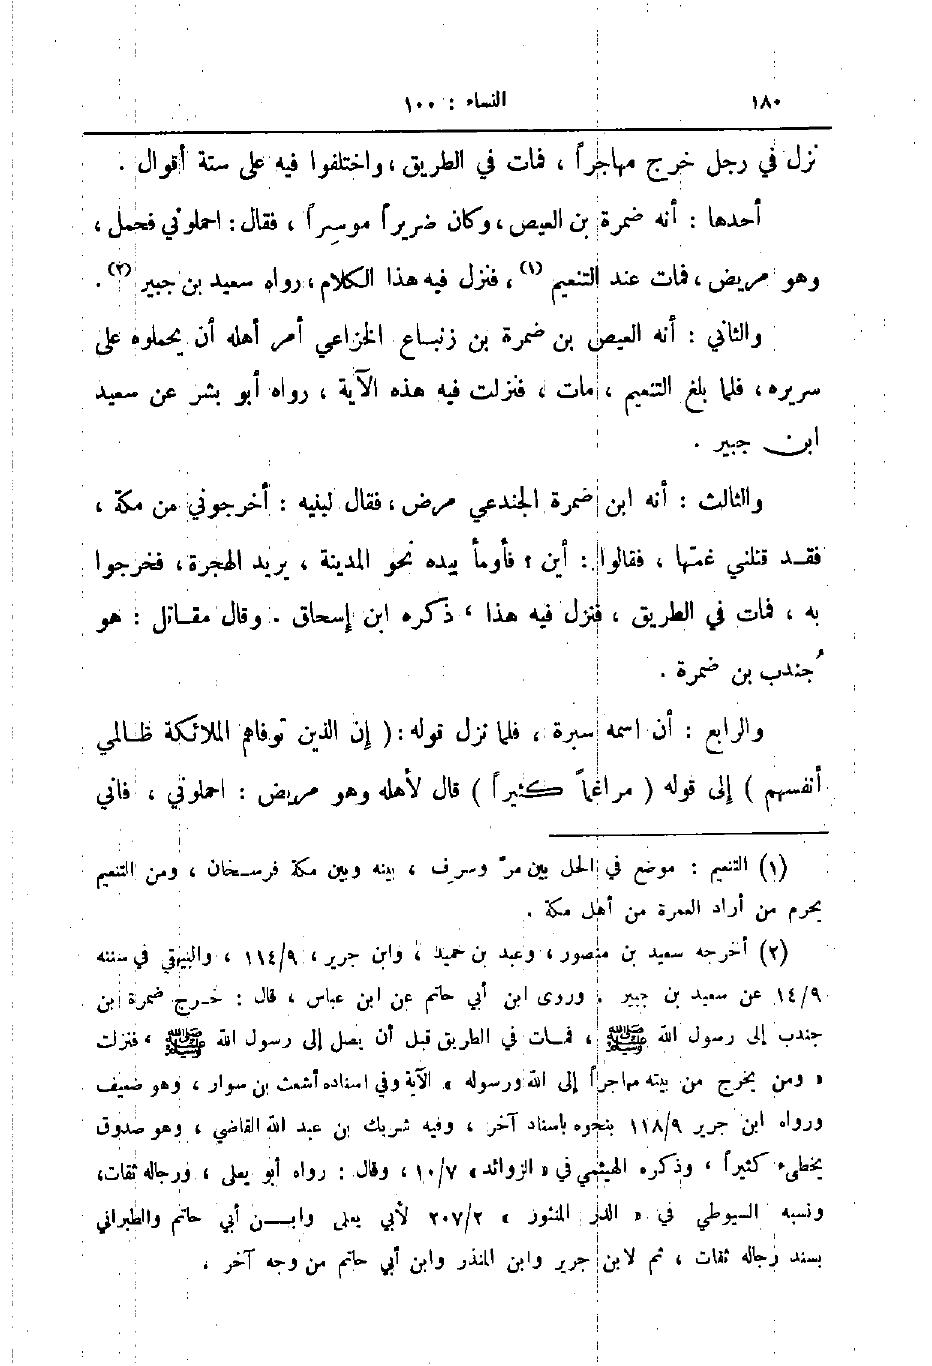 ١٨٠ النساء : ١٠٠
نزل في رجل خرج مهاجراً ، فمات في الطريق ، واختلفوا فيه على ستة أقوال .
أحدها : أنه ضمرة بن العيص ، وكان ضريراً موسراً ، فقال : احملوني فحمل ،
وهو مريض ، فمات عند التنعيم (١) ، فنزل فيه هذا الكلام ، رواه سعيد بن جبير (٢) .
والثاني : أنه العيص بن ضمرة بن زنباع الخزاعي أمر أهله أن يحملوه على
سريره ، فلما بلغ التنعيم ، مات ، فنزلت فيه هذه الآية ، رواه أبو بشر عن سعيد
ابن جبير .
والثالث : أنه ابن ضمرة الجندعي مرض ، فقال لبنيه : أخرجوني من مكة ،
فقد قتلني غمّها ، فقالوا : أين ؟ فأومأ بيده نحو المدينة ، يريد الهجرة ، فخرجوا
به ، فمات في الطريق ، فنزل فيه هذا ، ذكره ابن إسحاق . وقال مقاتل : هو
جُندب بن ضمرة .
والرابع : أن اسمه سبرة ، فلما نزل قوله : ( إن الذين توفاهم الملائكة ظالمي
أنفسهم ) إلى قوله ( مراغماً كثيراً ) قال لأهله وهو مريض : احملوني ، فاني
(١) التنعيم : موضع في الحل بين مرّ وسرف ، بينه وبين مكة فرسخان ، ومن التنعيم
يحرم من أراد العمرة من أهل مكة .
(٢) أخرجه سعيد بن منصور ، وعبد بن حميد ، وابن جرير ، ١١٤/٩ ، والبيهقي في سننه
١٤/٩ عن سعيد بن جبير . وروى ابن أبي حاتم عن ابن عباس ، قال : خرج ضمرة بن
جندب إلى رسول الله ﷺ ، فمات في الطريق قبل أن يصل إلى رسول الله ﷺ ، فنزلت
« ومن يخرج من بيته مهاجراً إلى الله ورسوله » الآية وفي اسناده أشعث بن سوار ، وهو ضعيف
ورواه ابن جرير ١١٨/٩ بنحوه باسناد آخر ، وفيه شريك بن عبد الله القاضي ، وهو صدوق
يخطىء كثيراً ، وذكره الهيثمي في « الزوائد » ١٠/٧ ، وقال : رواه أبو يعلى ، ورجاله ثقات ،
ونسبه السيوطي في « الدر المنثور » ٢٠٧/٢ لأبي يعلى وابن أبي حاتم والطبراني
بسند رجاله ثقات ، ثم لابن جرير وابن المنذر وابن أبي حاتم من وجه آخر .